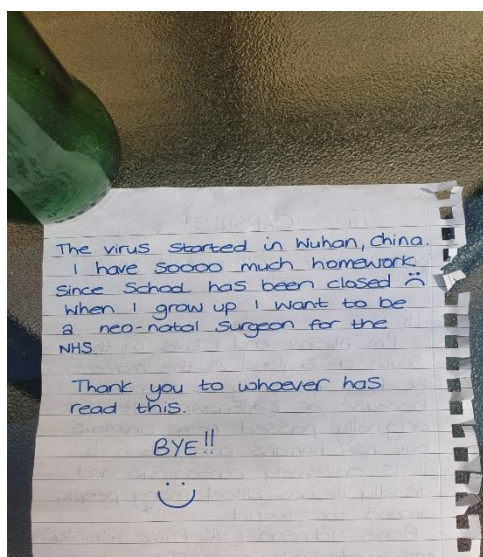 The virus started in Wuhan, China.
I have soooo much homework
since school has been closed ☹
When I grow up I want to be
a neo-natal surgeon for the
NHS.
Thank you to whoever has
read this.
BYE!!